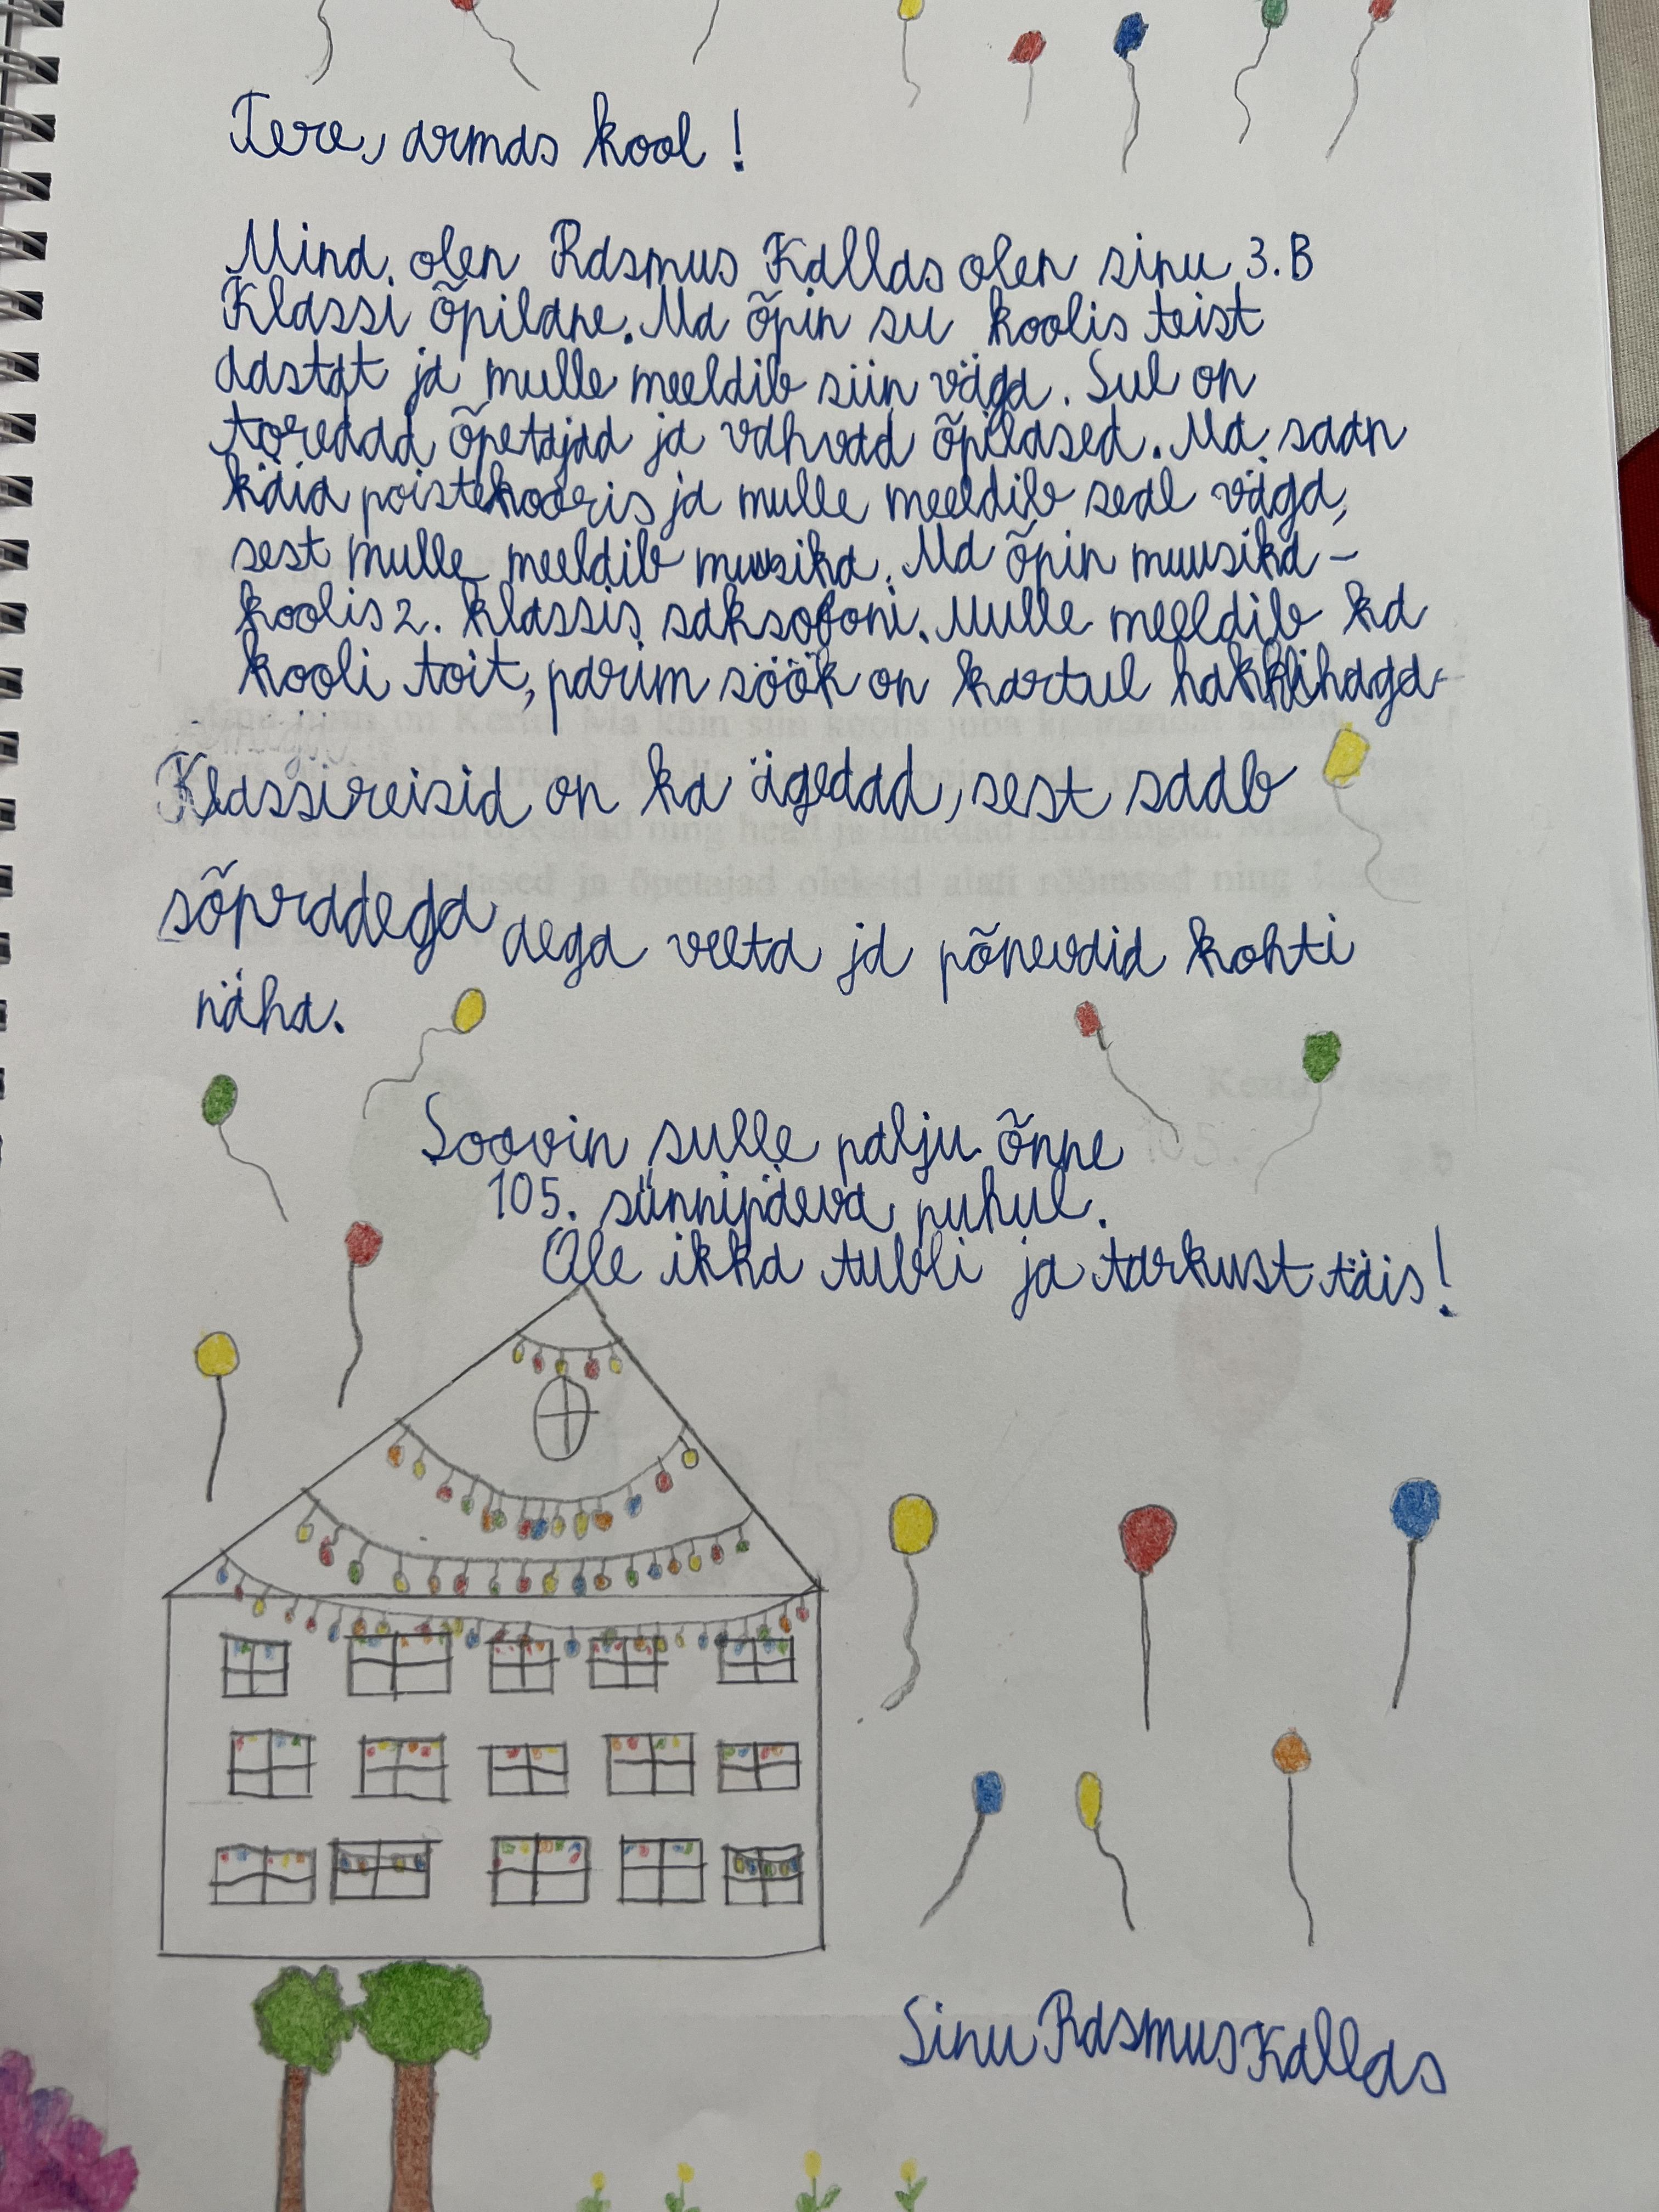 Tere, armas kool!
Mina olen Rasmus Kallas olen sinu 3.B
Klassi õpilane. Ma õpin su koolis teist
aastat ja mulle meeldib siin väga. Sul on
toredad õpetajad ja vahvad õpilased. Ma saan
käia poistekooris ja mulle meeldib seal väga,
sest mulle meeldib muusika. Ma õpin muusika-
koolis 2. klassis saksofoni. Mulle meeldib ka
kooli toit, parim söök on kartul hakklihaga-
Klassireisid on ka ägedad, sest saab
sõpradega aega veeta ja põnevaid kohti
näha.
Soovin sulle palju õnne
105. sünnipäeva puhul.
Ole ikka tubli ja tarkust täis!
Sinu Rasmus Kallas